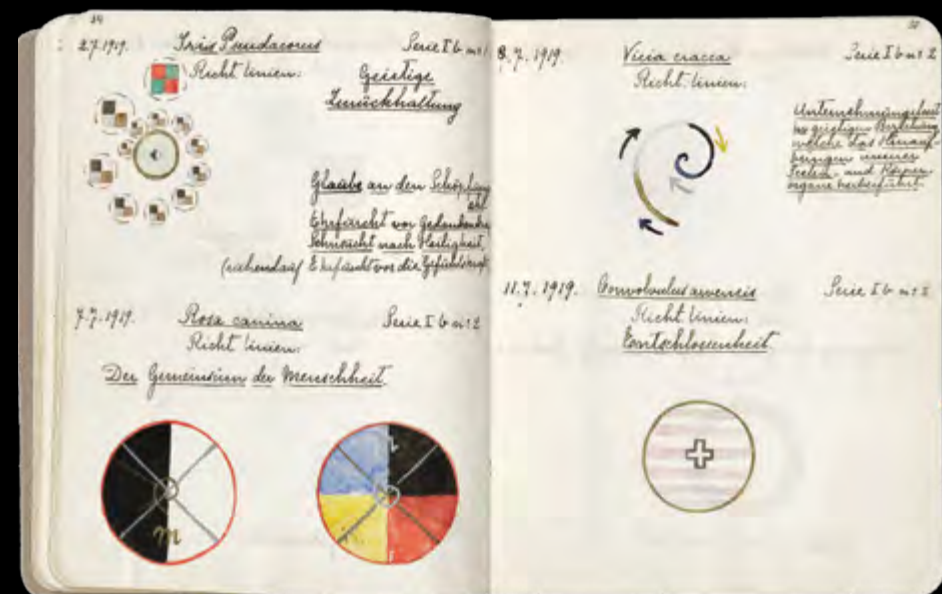 2.7.1919. Iris Pseudacorus Serie I b nr 1
Richt linien: Geistige
Zurückhaltung
Glaube an den Schöpfung
Ehrfurcht vor
Sehnsucht nach Heiligkeit,
Ehrfurcht vor die
7.7.1919. Rosa canina Serie I b nr 2
Richt linien:
Der Gemeinsinn der Menschheit.
8.7.1919. Vicia cracca Serie I b nr 2
Richt linien:
Unternehmungslust
geistigen
welche das
unserer
Seelen- und Körper
organe herbeiführt.
11.7.1919. Convolvulus arvensis Serie I b nr 2
Richt linien:
Entschlossenheit